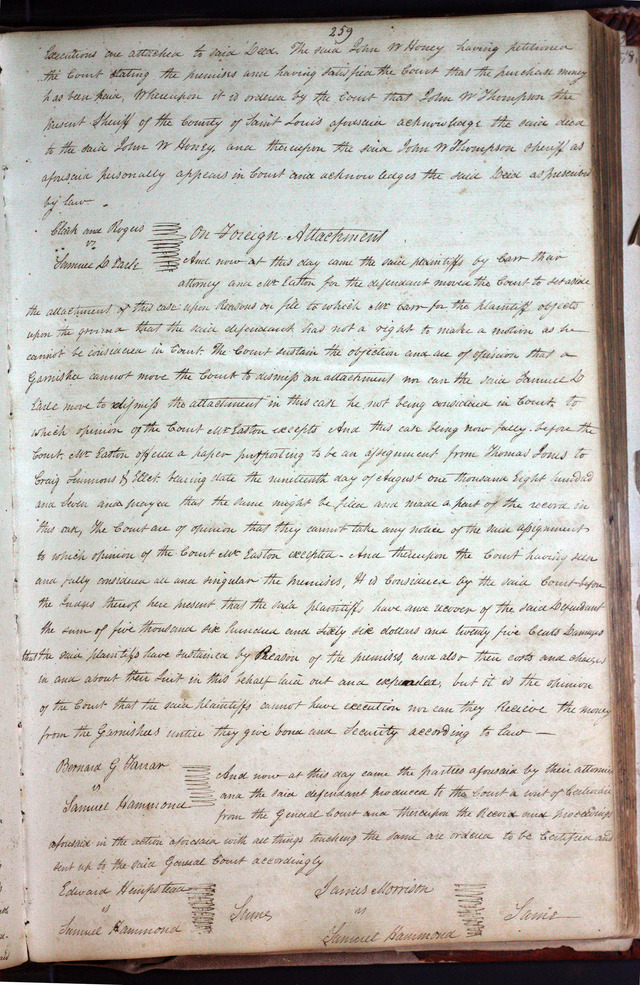 259
Executions are attached to said Deed. The said John W Honey having petitioned
the Court stating the premises and having satisfied the Court that the purchase money
has been paid, Whereupon it is ordered by the Court that John W Thompson the
present Sheriff of the County of Saint Louis aforesaid acknowledge the said deed
to the said John W Honey, and thereupon the said John W Thompson Sheriff as
aforesaid personally appears in Court and acknowledges the said Deed as prescribed
by law.
Clark and Rogers
vs
Samuel D Earle
On Foreign Attachment
And now at this day came the said plaintiffs by Carr their
attorney and Mr Easton for the defendant moved the Court to set aside
the attachment of this case upon Reasons on file to which Mr Carr for the plaintiff objects
upon the ground that the said defendant has not a right to make a motion as he
cannot be considered in Court. The Court sustain the objection and are of opinion that a
Garnishee cannot move the Court to dismiss an attachment nor can the said Samuel D
Earle move to dismiss the attachment in this case he not being considered in Court, to
which opinion of the Court Mr Easton excepts And this case being now fully before the
Court, Mr Easton offered a paper purporting to be an assignment from Thomas Jones to
Craig bearing date the nineteenth day of August one thousand Eight hundred
and Seven and prayed that the same might be filed and made a part of the record in
this case, The Court are of opinion that they cannot take any notice of the said assignment
to which opinion of the Court Mr Easton excepted - And thereupon the Court having seen
and fully considered all and singular the premises, It is Considered by the said Court before
the Judges thereof here present that the said plaintiffs have and recover of the said Defendant
the sum of five thousand six hundred and sixty six dollars and twenty five Cents Damages
that the said plaintiffs have sustained by Reason of the premises, and also their costs and charges
in and about their Suit in this behalf laid out and expended, but it is the opinion
of the Court that the said plaintiffs cannot have execution nor can they Receive the money
from the Garnishees until they give bond and Security according to law —
Bernard G Farrar
vs
Samuel Hammond
And now at this day came the parties aforesaid by their attornies
and the said defendant produced to the Court a writ of Certiorari
from the General Court and thereupon the Record and proceedings
aforesaid in the action aforesaid with all things touching the same are ordered to be Certified and
sent up to the said General Court accordingly
Edward Hempstead
vs
Samuel Hammond
Same
James Morrison
vs
Samuel Hammond
Same